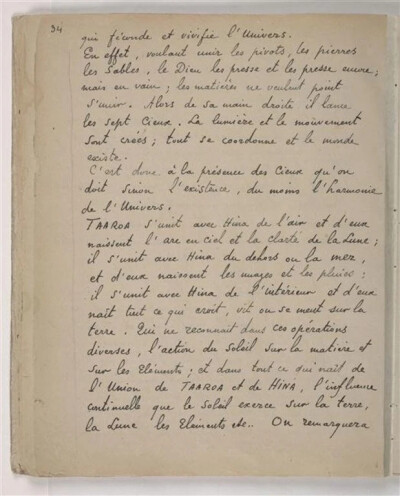 34
qui féconde et vivifie l'Univers.
En effet, voulant unir les pivots, les pierres
les Sables, le Dieu les presse et les presse encore;
mais en vain; les matières ne veulent point
s'unir. Alors de sa main droite il lance
les sept Cieux. La lumière et le mouvement
sont créés; tout se coordonne et le monde
existe.
C'est donc à la présence des Cieux qu'on
doit sinon l'existence, du moins l'harmonie
de l'Univers.
TAAROA s'unit avec Hina de l'air et d'eux
naissent l'arc en ciel et la clarté de la Lune;
il s'unit avec Hina du dehors ou la mer,
et d'eux naissent les nuages et les pluies;
il s'unit avec Hina de l'intérieur et d'eux
naît tout ce qui croit, vit ou se meut sur la
terre. Qui ne reconnait dans ces opérations
diverses, l'action du Soleil sur la matière et
sur les Eléments; et dans tout ce qui naît de
l'Union de TAAROA et de HINA, l'influence
continuelle que le soleil exerce sur la terre,
la Lune les Eléments etc.. On remarquera